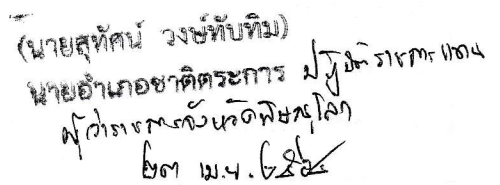 (นายสุทัศน์ วงษ์ทับทิม)
นายอำเภอชาติตระการ ปฏิบัติราชการแทน
ผู้ว่าราชการจังหวัดพิษณุโลก
๒๓ เม.ย. ๒๕๖๔